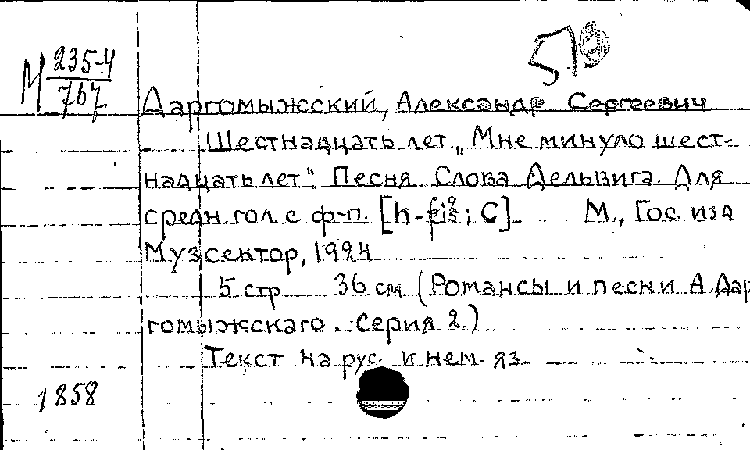 М 235-4
767
Даргомыжский, Александр Сергеевич
Шестнадцать лет „Мне минуло шест-
надцать лет". Песня. Слова Дельвига. Для
средн. гол. с ф-п. [h- ; G]. М., Гос. изд
Музсектор, 1924
5 стр 36 см (Романсы и песни А. Дар
гомыжскаго. Серия 2.)
Текст на рус. и нем. яз
1858